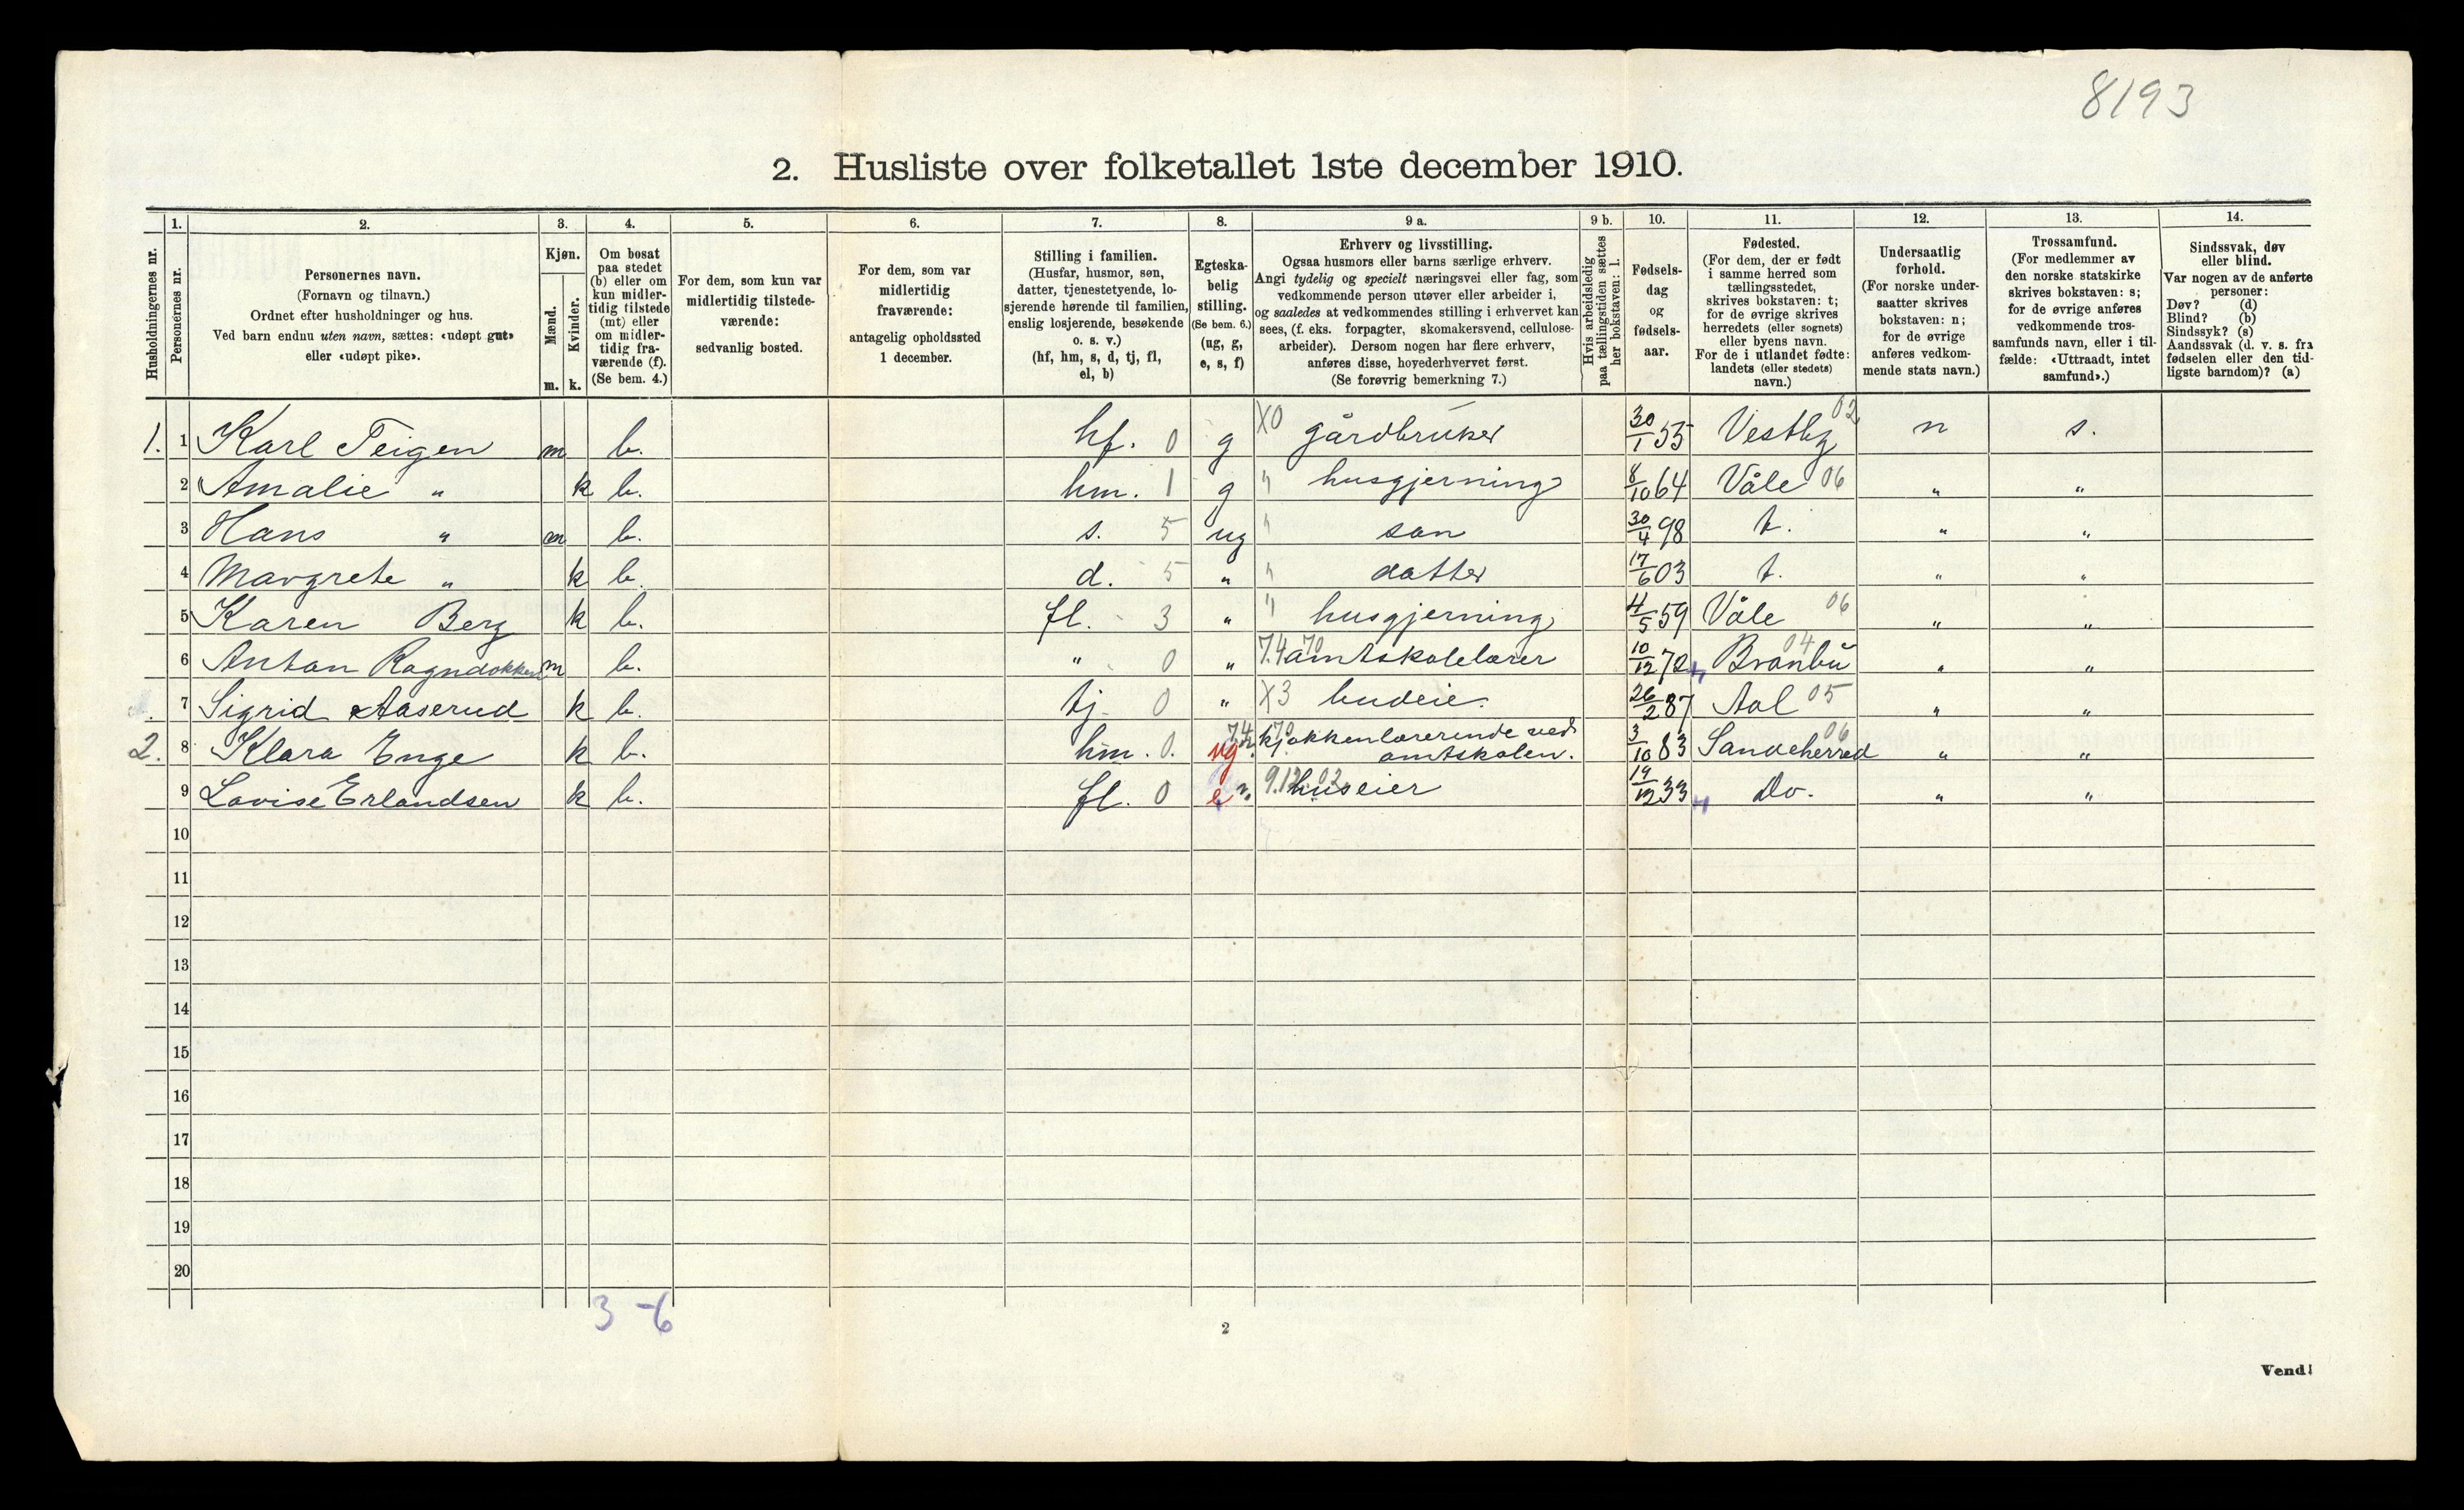 8193
2. Husliste over folketallet 1ste december 1910.
1. 2. 3. 4. 5. 6. 7. 8. 9 a. 9 b. 10. 11. 12. 13. 14.
Husholdningernes nr.
Personernes nr.
Personernes navn.
(Fornavn og tilnavn.)
Ordnet efter husholdninger og hus.
Ved barn endnu uten navn, sættes: «udøpt gut»
eller «udøpt pike».
Kjøn.
Mænd.
Kvinder.
m. k.
Om bosat
paa stedet
(b) eller om
kun midler-
tidig tilstede
(mt) eller
om midler-
tidig fra-
værende (f).
(Se bem. 4.)
For dem, som kun var
midlertidig tilstede-
værende:
sedvanlig bosted.
For dem, som var
midlertidig
fraværende:
antagelig opholdssted
1 december.
Stilling i familien.
(Husfar, husmor, søn,
datter, tjenestetyende, lo-
sjerende hørende til familien,
enslig losjerende, besøkende
o. s. v.)
(hf, hm, s, d, tj, fl,
el, b)
Egteska-
belig
stilling.
(Se bem. 6.)
(ug, g,
e, s, f)
Erhverv og livsstilling.
Ogsaa husmors eller barns særlige erhverv.
Angi tydelig og specielt næringsvei eller fag, som
vedkommende person utøver eller arbeider i,
og saaledes at vedkommendes stilling i erhvervet kan
sees, (f. eks. forpagter, skomakersvend, cellulose-
arbeider). Dersom nogen har flere erhverv,
anføres disse, hovederhvervet først.
(Se forøvrig bemerkning 7.)
Hvis arbeidsledig
paa tællingstiden sættes
her bokstaven: l.
Fødsels-
dag
og
fødsels-
aar.
Fødested.
(For dem, der er født
i samme herred som
tællingsstedet,
skrives bokstaven: t;
for de øvrige skrives
herredets (eller sognets)
eller byens navn.
For de i utlandet fødte:
landets (eller stedets)
navn.)
Undersaatlig
forhold.
(For norske under-
saatter skrives
bokstaven: n;
for de øvrige
anføres vedkom-
mende stats navn.)
Trossamfund.
(For medlemmer av
den norske statskirke
skrives bokstaven: s;
for de øvrige anføres
vedkommende tros-
samfunds navn, eller i til-
fælde: «Uttraadt, intet
samfund».)
Sindssvak, døv
eller blind.
Var nogen av de anførte
personer:
Døv? (d)
Blind? (b)
Sindssyk? (s)
Aandssvak (d. v. s. fra
fødselen eller den tid-
ligste barndom)? (a)
1. 1 Karl Teigen m b. hf. 0 g X0 gårdbruker 30/1 55 Vestby 02 n s.
2 Amalie " k b. hm. 1 g " husgjerning 8/10 64 Våle 06 " "
3 Hans " m b. s. 5 ug " søn 30/4 98 t. " "
4 Margrete " k b. d. 5 " " datter 17/6 03 t. " "
5 Karen Berg k b. fl. 3 " " husgjerning 4/5 59 Våle 06 " "
6 Anton Rogndokken m b. " 0 " 7.4 70 amtskolelærer 10/12 72 Branbu 04 " "
7 Sigrid Aaserud k b. tj. 0 " X3 budeie. 26/2 87 Aal 05 " "
2. 8 Klara Enge k b. hm. 0. ug 74 70 kjøkkenlærerinde ved
amtskolen. 3/10 83 Sandeherred 06 " "
9 Lovise Erlandsen k b. fl. 0 e 9.12.02 huseier 19/12 33 Do. " "
10
11
12
13
14
15
16
17
18
19
20
3-6
2
Vend!